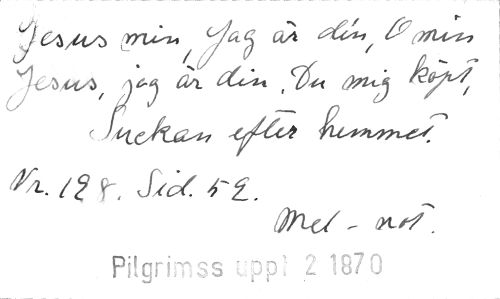 Jesus min, Jag är din, O min
Jesus, jag är din. Du mig köpt,
Suckan efter hemmet.
Nr. 128. Sid. 52.
Mel - not.
Pilgrimss uppl 2 1870